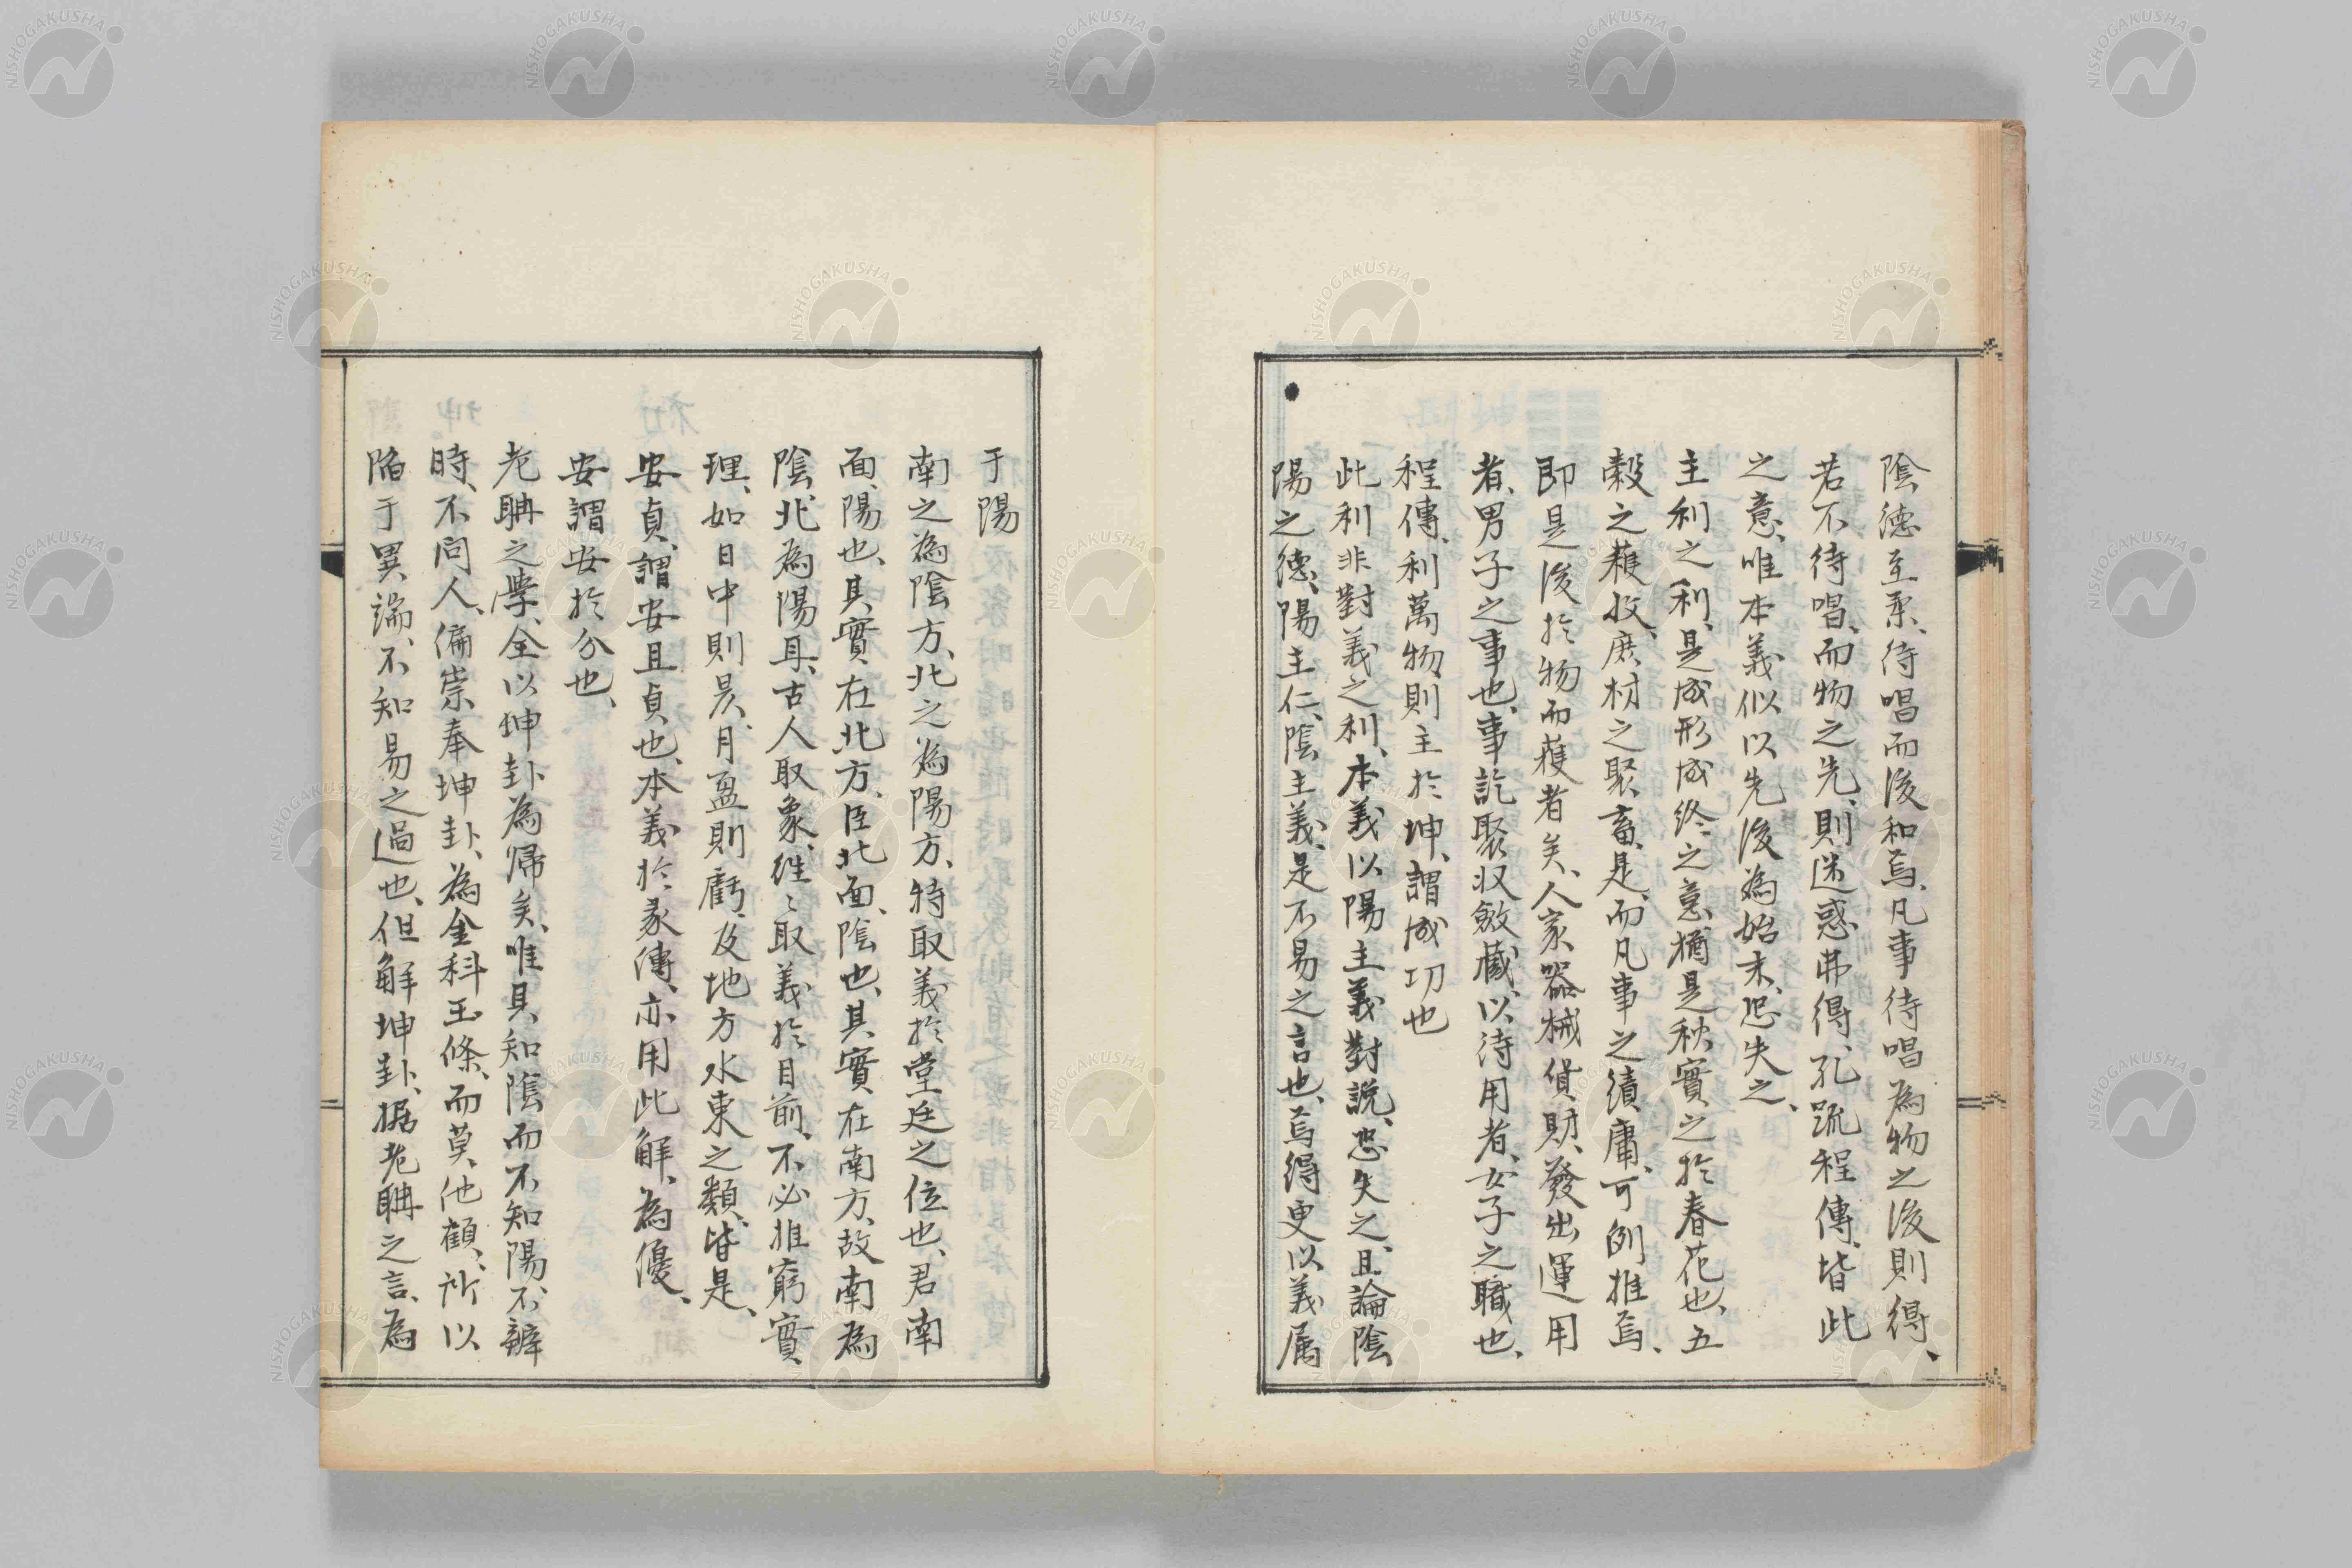 陰德至柔、待唱而後和焉、凡事待唱為物之後則得、
若不待唱、而物之先、則迷惑弗得、孔疏程傳、皆此
之意、唯本義似以先後為始末、恐失之、
主利之利、是成形成終之意、猶是秋實之於春花也、五
穀之穫收、庶材之聚畜、是、而凡事之績庸、可例推焉、
即是後於物而穫者矣、人家器械貨財、發出運用
者、男子之事也、事訖聚収斂藏、以待用者、女子之職也、
程傳、利萬物則主於坤、謂成功也
此利非對義之利、本義以陽主義對説、恐失之、且論陰
陽之德、陽主仁、陰主義、是不易之言也、焉得更以義属
于陽
南之為陰方、北之為陽方、特取義於堂廷之位也、君南
面、陽也、其實在北方、臣北面、陰也、其實在南方、故南為
陰、北為陽耳、古人取象、往〻取義於目前、不必推窮實
理、如日中則昃、月盈則虧、及地方水東之類、皆是、
安貞、謂安且貞也、本義於彖傳、亦用此解、為優、
安謂安於分也、
老聃之學、全以坤卦為帰矣、唯具知陰而不知陽、不辨
時、不問人、偏崇奉坤卦、為金科玉條、而莫他顧、所以
陥于異端、不知易之過也、但解坤卦、据老聃之言、為
NISHOGAKUSHA